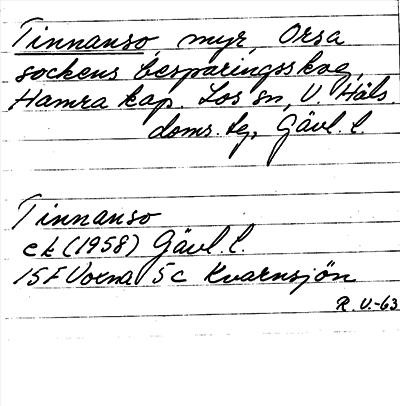 Tinnanso, myr, Orsa
sockens besparingsskog,
Hamra kap. Los sn, V. Häls.
doms. tg, Gävl. l.
Tinnanso
ek (1958) Gävl. l.
15F Voxna 5c Kvarnsjön
R. V.-63